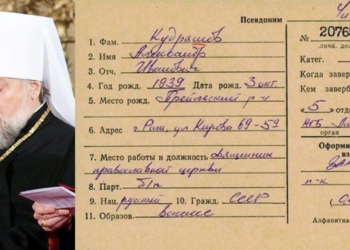 Псевдоним
1. Фам. Кудряшов
2. Имя Александр
3. Отч. Иванович
4. Год рожд. 1939 Дата рожд. 3 окт.
5. Место рожд. р-н
6. Адрес г. Рига, ул. Кирова 69-59
7. Место работы и должность священник
православной церкви
8. Парт. б/п
9. Нац. русский 10. Гражд. СССР
11. Образов. высшее
№ 2076
личн. дел
Катег.
Когда завер
Кем завербо
5 отде
орган
Оформи
вз
п-к
Алфавитна